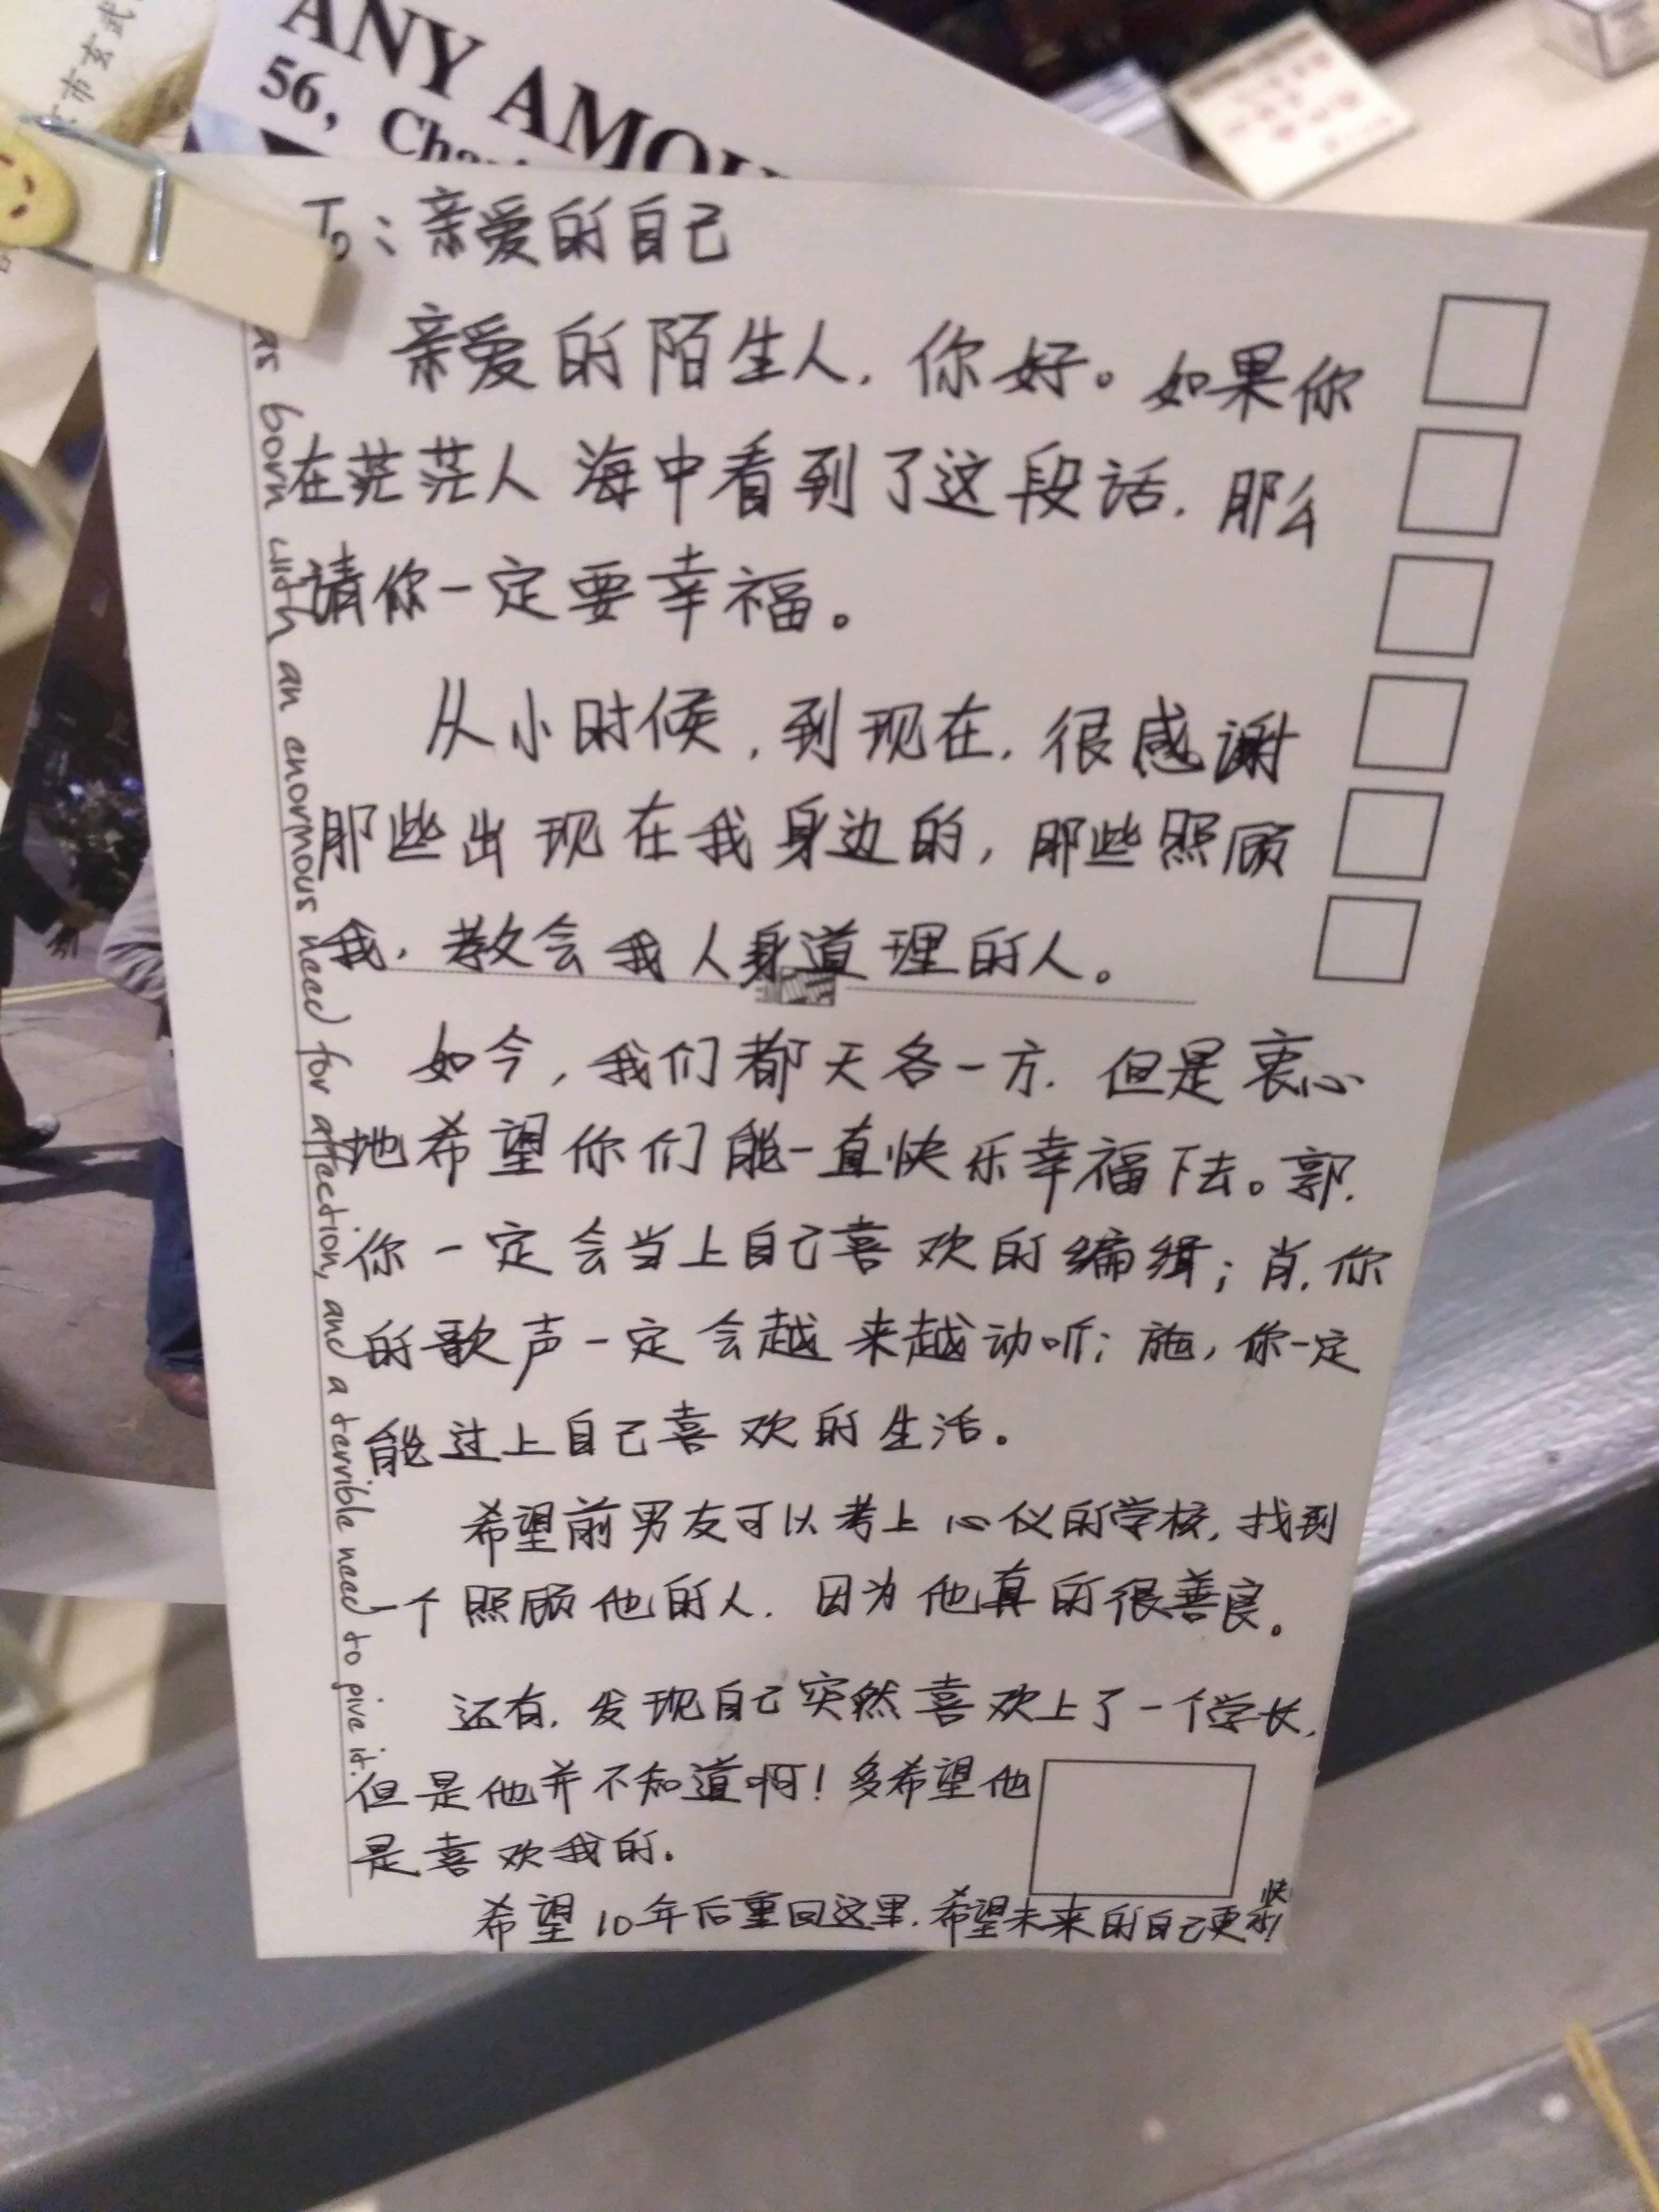 市玄武
ANY AMOU
56, Cha
To:亲爱的自己
亲爱的陌生人,你好。如果你
在茫茫人海中看到了这段话,那么
请你一定要幸福。
从小时候,到现在,很感谢
那些出现在我身边的,那些照顾
我,教会我人身道理的人。
如今,我们都天各一方,但是衷心
地希望你们能一直快乐幸福下去。郭,
你一定会当上自己喜欢的编缉;肖,你
的歌声一定会越来越动听;施,你一定
能过上自己喜欢的生活。
希望前男友可以考上心仪的学校,找到
一个照顾他的人,因为他真的很善良。
还有,发现自己突然喜欢上了一个学长,
但是他并不知道啊!多希望他
是喜欢我的.
希望10年后重回这里,希望未来的自己更快乐!
as born with an enormous need for affection, and a terrible need to give it.